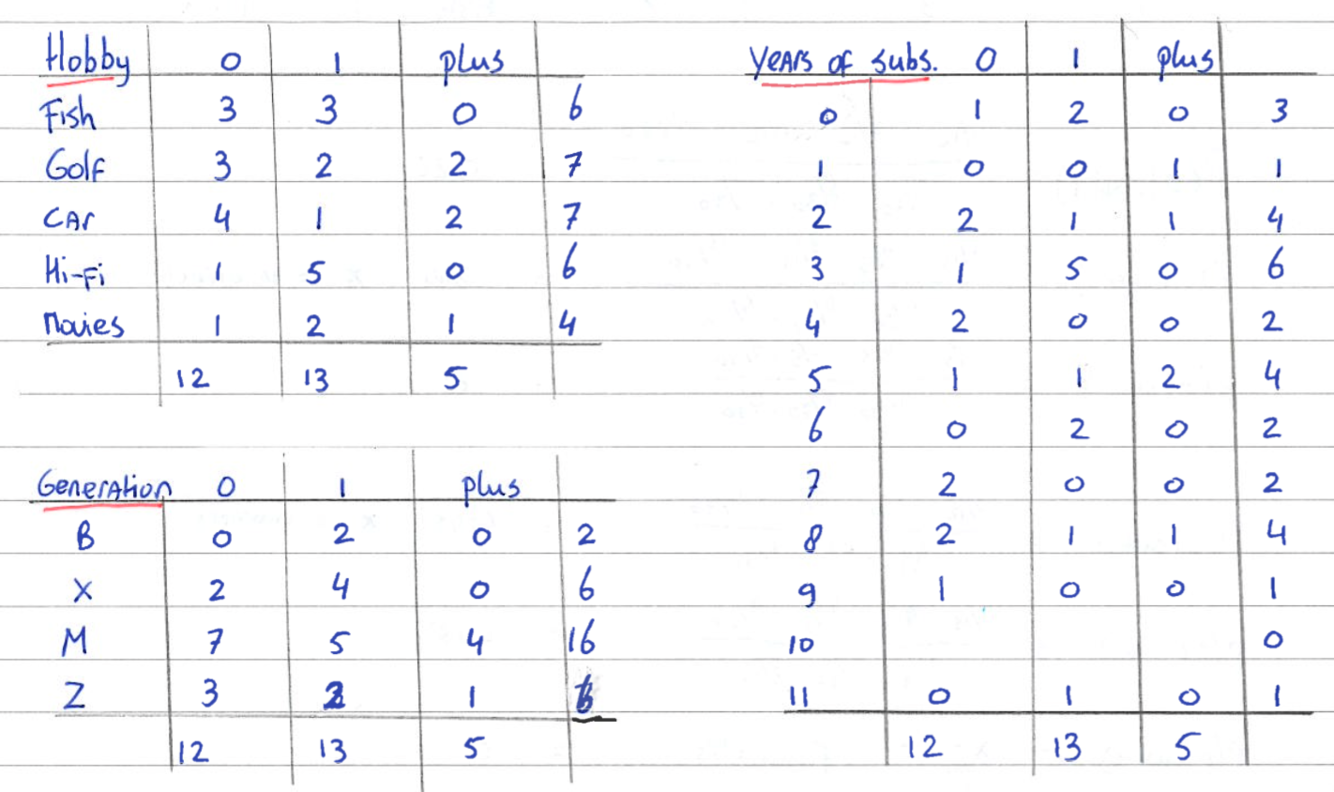 Hobby 0 1 plus
Fish 3 3 0 6
Golf 3 2 2 7
CAr 4 1 2 7
Hi-Fi 1 5 0 6
Movies 1 2 1 4
12 13 5
Generation 0 1 plus
B 0 2 0 2
X 2 4 0 6
M 7 5 4 16
Z 3 2 1 6
12 13 5
Years of subs. 0 1 plus
0 1 2 0 3
1 0 0 1 1
2 2 1 1 4
3 1 5 0 6
4 2 0 0 2
5 1 1 2 4
6 0 2 0 2
7 2 0 0 2
8 2 1 1 4
9 1 0 0 1
10 0
11 0 1 0 1
12 13 5